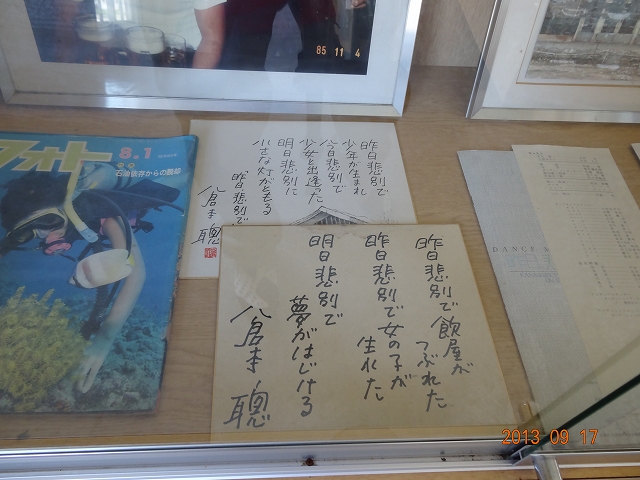 85 11 4
フォト
8.1
石油依存からの脱却
昨日悲別で
少年が生まれ
今日悲別で
少女と出逢った
明日悲別に
小さな灯がともる
昨日悲別で
倉本聰
昨日悲別で飲屋が
つぶれた
昨日悲別で女の子が
生れた
明日悲別で
夢がはじける
倉本聰
DANCE
2013 09 17